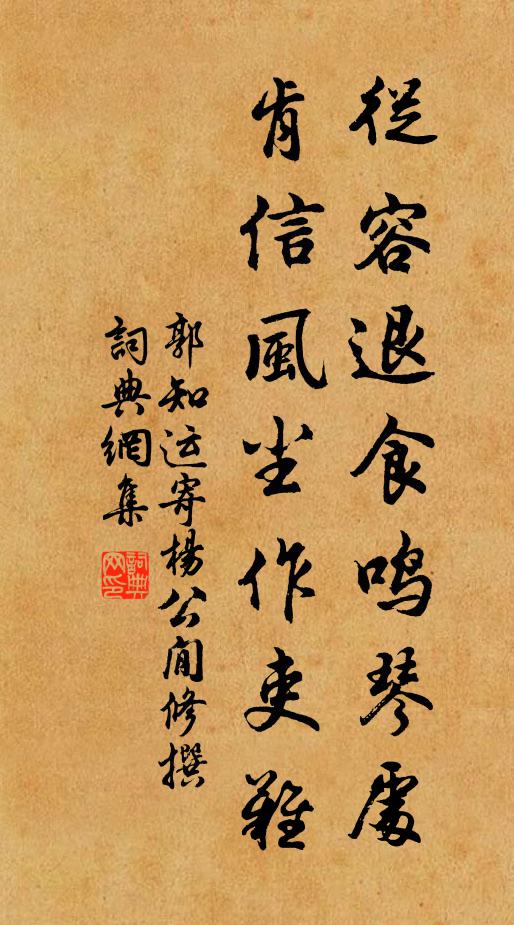 從容退食鸣琴處
肯信風尘作吏難
郭知运寄楊公閒修撰
詞典網集
詞典网印